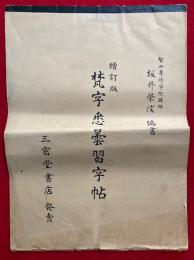 智山専修学院講師
坂井栄信 編書
増訂版
梵字悉曇習字帖
三密堂書店 発売